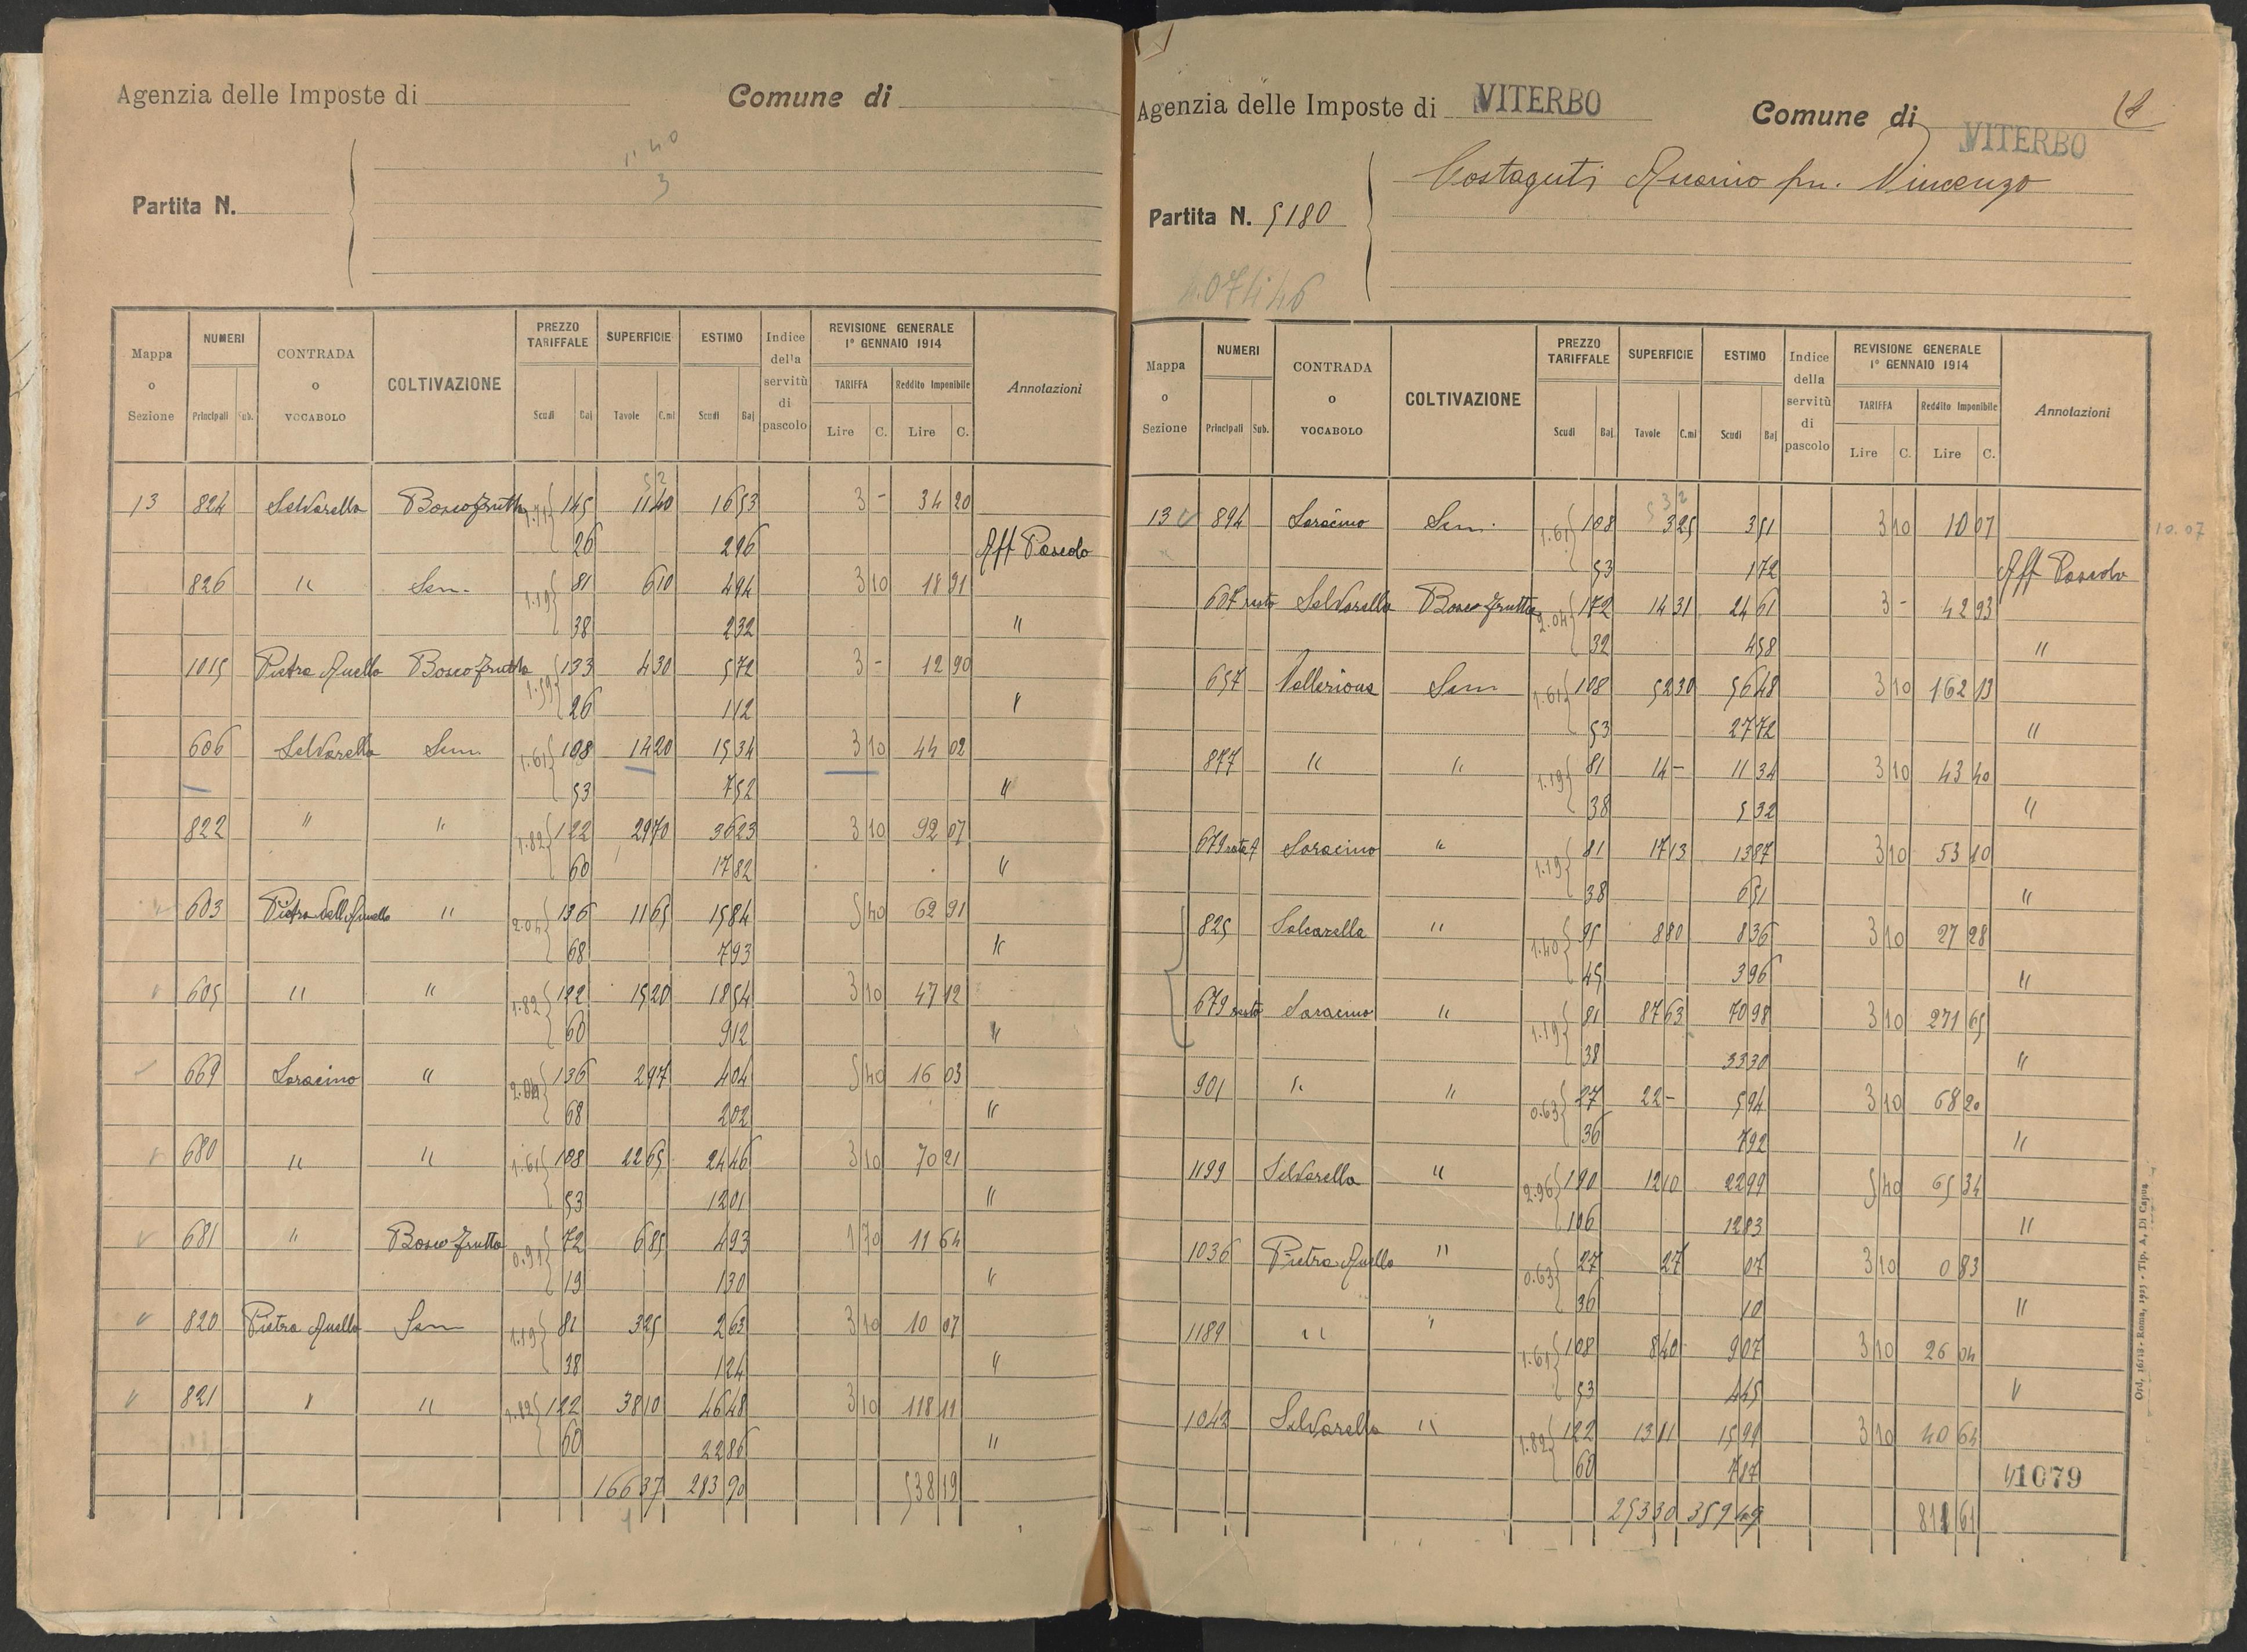 Agenzia delle Imposte di
Comune di
11 40
3
Partita N.
Mappa o Sezione NUMERI CONTRADA o VOCABOLO COLTIVAZIONE PREZZO TARIFFALE SUPERFICIE ESTIMO Indice della servitù di pascolo REVISIONE GENERALE 1º GENNAIO 1914 Annotazioni
TARIFFA Reddito Imponibile
Principali Sub. Scudi Baj Tavole C.mi Scudi Baj Lire C. Lire C.
52
13 824 Selvarella Bosco frutto 1.71 145 11 40 16 53 3 - 34 20
26 2 96 Aff Pascolo
826 " Sem. 1.19 81 6 10 4 94 3 10 18 91
38 2 32 "
1015 Pietra Anello Bosco frutto 1.59 133 4 30 5 72 3 - 12 90
26 1 12 "
606 Selvarella Sem. 1.61 108 14 20 15 34 3 10 44 02
53 7 52 "
822 " " 1.82 122 29 70 36 23 3 10 92 07
60 17 82 "
603 Pietra dell'Anello " 2.04 136 11 65 15 84 5 40 62 91
68 7 93 "
605 " " 1.82 122 15 20 18 54 3 10 47 12
60 9 12 "
669 Saracino " 2.04 136 2 97 4 04 5 40 16 03
68 2 02 "
680 " " 1.61 108 22 65 24 46 3 10 70 21
53 12 01 "
681 " Bosco frutto 0.91 72 6 85 4 93 1 70 11 64
19 1 30 "
820 Pietra Anello Sem 1.19 81 3 25 2 63 3 10 10 07
38 1 24 "
821 " " 1.82 122 38 10 46 48 3 10 118 11
60 22 86 "
166 37 283 90 538 19
Agenzia delle Imposte di VITERBO
Comune di VITERBO
Costaguti Ascanio fu. Vincenzo
Partita N. 5180
Mappa o Sezione NUMERI CONTRADA o VOCABOLO COLTIVAZIONE PREZZO TARIFFALE SUPERFICIE ESTIMO Indice della servitù di pascolo REVISIONE GENERALE 1º GENNAIO 1914 Annotazioni
TARIFFA Reddito Imponibile
Principali Sub. Scudi Baj. Tavole C.mi Scudi Baj Lire C. Lire C.
13 894 Saracino Sem. 1.61 108 3 25 3 51 3 10 10 07 10.07
53 1 72 Aff Pascolo
607 resto Selvarella Bosco frutto 2.04 172 14 31 24 61 3 - 42 93
32 4 58 "
657 Sem 1.61 108 52 30 56 48 3 10 162 13
53 27 72 "
877 " " 1.19 81 14 - 11 34 3 10 43 40
38 5 32 "
679 Saracino " 1.19 81 17 13 13 87 3 10 53 10
38 6 51 "
825 Selvarella " 1.40 95 8 80 8 36 3 10 27 28
45 3 96 "
679 resto Saracino " 1.19 81 87 63 70 98 3 10 271 65
38 33 30 "
901 " " 0.63 27 22 - 5 94 3 10 68 20
36 7 92 "
1199 Selvarella " 2.96 190 12 10 22 99 5 40 65 34
106 12 83 "
1036 Pietra Anello " 0.63 27 27 07 3 10 0 83
36 10 "
1189 " " 1.61 108 8 40 9 07 3 10 26 04
53 4 45 "
1042 Selvarella " 1.82 122 13 11 15 99 3 10 40 64
60 7 87 "
1079
253 30 359 49 811 61
Ord. 16118 - Roma, 1923 - Tip. A. Di Capua